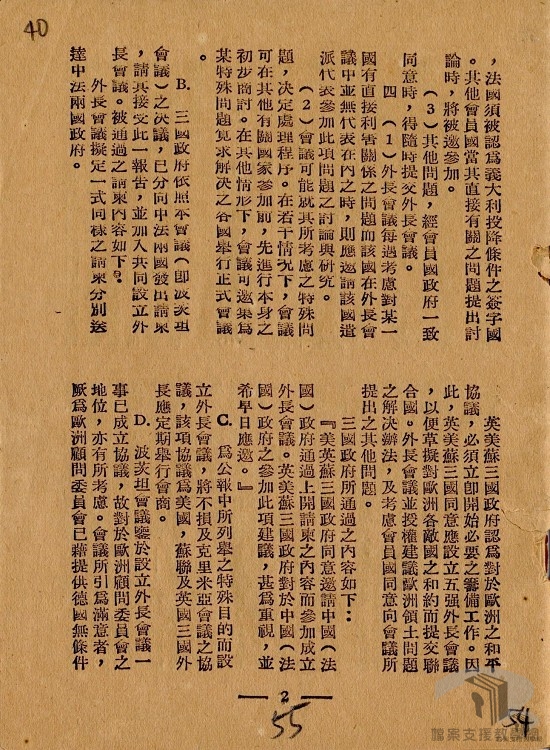 ，法國須被認爲義大利投降條件之簽字國
。其他會員國當其直接有關之問題提出討
論時，將被邀參加。
（3）其他問題，經會員國政府一致
同意時，得隨時提交外長會議。
四　（1）外長會議每遇考慮對某一
國有直接利害關係之問題而該國在外長會
議中並無代表在內之時，則應邀請該國遣
派代表參加此項問題之討論與研究。
（2）會議可能就其所考慮之特殊問
題，決定處理程序。在若干情况下，會議
可在其他有關國家參加前，先進行本身之
初步商討。在其他情形下，會議可邀集爲
某特殊問題覓求解決之各國舉行正式會議
。
B.　三國政府依照本會議（即波茨坦
會議）之決議，已分向中法兩國發出請柬
，請其接受此一報告，並加入共同設立外
長會議。被通過之請柬內容如下：
外長會議擬定一式同樣之請柬分別送
達中法兩國政府。
英美蘇三國政府認爲對於歐洲之和平
協議，必須立卽開始必要之籌備工作。因
此，英美蘇三國同意應設立五强外長會議
，以便草擬對歐洲各敵國之和約而提交聯
合國。外長會議並授權建議歐洲領土問題
之解決辦法，及考慮會員國同意向會議所
提出之其他問題。
三國政府所通過之內容如下：
『美英蘇三國政府同意邀請中國（法
國）政府通過上開請柬之內容而參加成立
外長會議。英美蘇三國政府對於中國（法
國）政府之參加此項建議，甚爲重視，並
希早日應邀。』
C.　爲公報中所列舉之特殊目的而設
立外長會議，將不損及克里米亞會議之協
議，該項協議爲美國，蘇聯及英國三國外
長應定期舉行會商。
D.　波茨坦會議鑒於設立外長會議一
事已成立協議，故對於歐洲顧問委員會之
地位，亦有所考慮。會議所引爲滿意者，
厥爲歐洲顧問委員會已藉提供德國無條件
2
40
55
54
檔案支援教學網